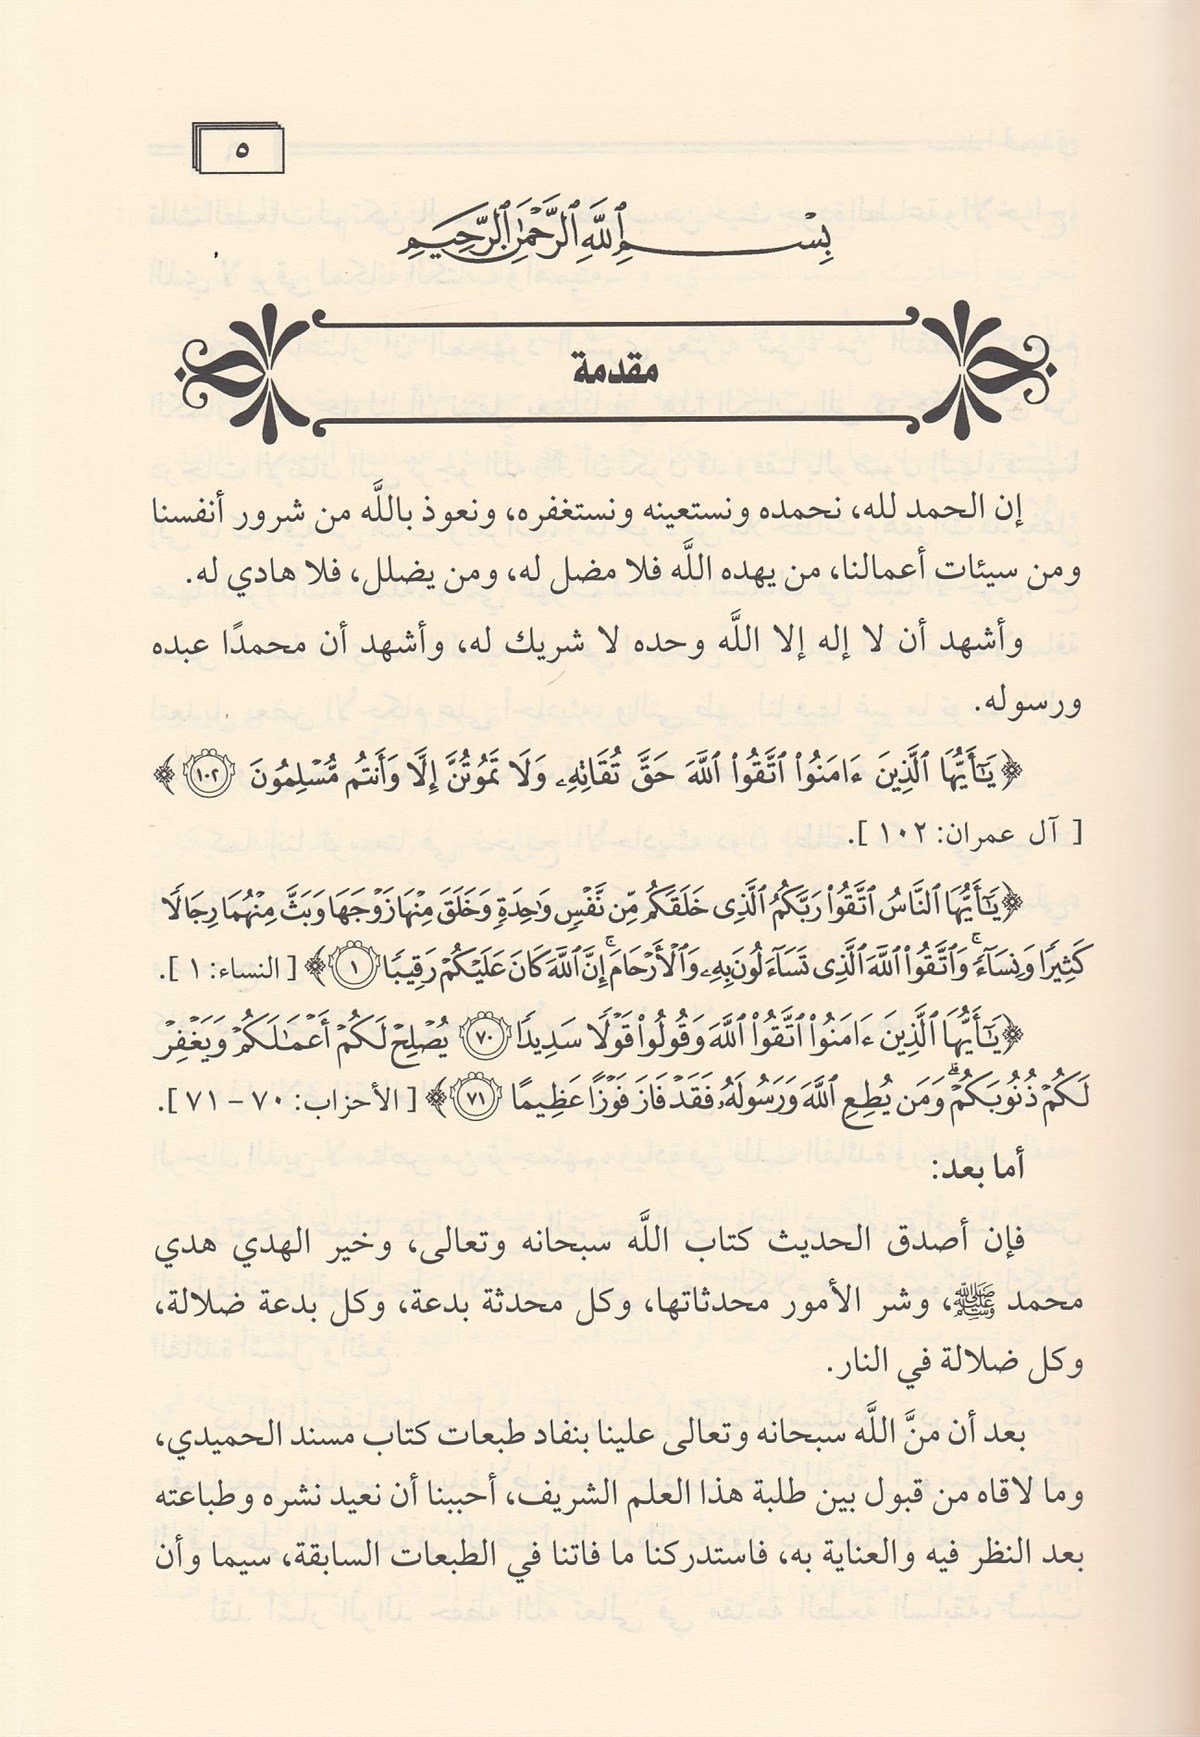 ٥
بِسْمِ ٱللَّهِ ٱلرَّحْمَٰنِ ٱلرَّحِيمِ
مقدمة
إن الحمد لله، نحمده ونستعينه ونستغفره، ونعوذ باللَّه من شرور أنفسنا
ومن سيئات أعمالنا، من يهده اللَّه فلا مضل له، ومن يضلل، فلا هادي له.
وأشهد أن لا إله إلا اللَّه وحده لا شريك له، وأشهد أن محمدًا عبده
ورسوله.
﴿يَٰٓأَيُّهَا ٱلَّذِينَ ءَامَنُوا۟ ٱتَّقُوا۟ ٱللَّهَ حَقَّ تُقَاتِهِۦ وَلَا تَمُوتُنَّ إِلَّا وَأَنتُم مُّسْلِمُونَ ١٠٢﴾
[ آل عمران: ١٠٢ ].
﴿يَٰٓأَيُّهَا ٱلنَّاسُ ٱتَّقُوا۟ رَبَّكُمُ ٱلَّذِى خَلَقَكُم مِّن نَّفْسٍ وَٰحِدَةٍ وَخَلَقَ مِنْهَا زَوْجَهَا وَبَثَّ مِنْهُمَا رِجَالًا
كَثِيرًا وَنِسَآءً ۚ وَٱتَّقُوا۟ ٱللَّهَ ٱلَّذِى تَسَآءَلُونَ بِهِۦ وَٱلْأَرْحَامَ ۚ إِنَّ ٱللَّهَ كَانَ عَلَيْكُمْ رَقِيبًا ١﴾ [ النساء: ١ ].
﴿يَٰٓأَيُّهَا ٱلَّذِينَ ءَامَنُوا۟ ٱتَّقُوا۟ ٱللَّهَ وَقُولُوا۟ قَوْلًا سَدِيدًا ٧٠ يُصْلِحْ لَكُمْ أَعْمَٰلَكُمْ وَيَغْفِرْ
لَكُمْ ذُنُوبَكُمْ ۗ وَمَن يُطِعِ ٱللَّهَ وَرَسُولَهُۥ فَقَدْ فَازَ فَوْزًا عَظِيمًا ٧١﴾ [ الأحزاب: ٧٠ – ٧١ ].
أما بعد:
فإن أصدق الحديث كتاب اللَّه سبحانه وتعالى، وخير الهدي هدي
محمد ﷺ، وشر الأمور محدثاتها، وكل محدثة بدعة، وكل بدعة ضلالة،
وكل ضلالة في النار.
بعد أن منَّ اللَّه سبحانه وتعالى علينا بنفاد طبعات كتاب مسند الحميدي،
وما لاقاه من قبول بين طلبة هذا العلم الشريف، أحببنا أن نعيد نشره وطباعته
بعد النظر فيه والعناية به، فاستدركنا ما فاتنا في الطبعات السابقة، سيما وأن